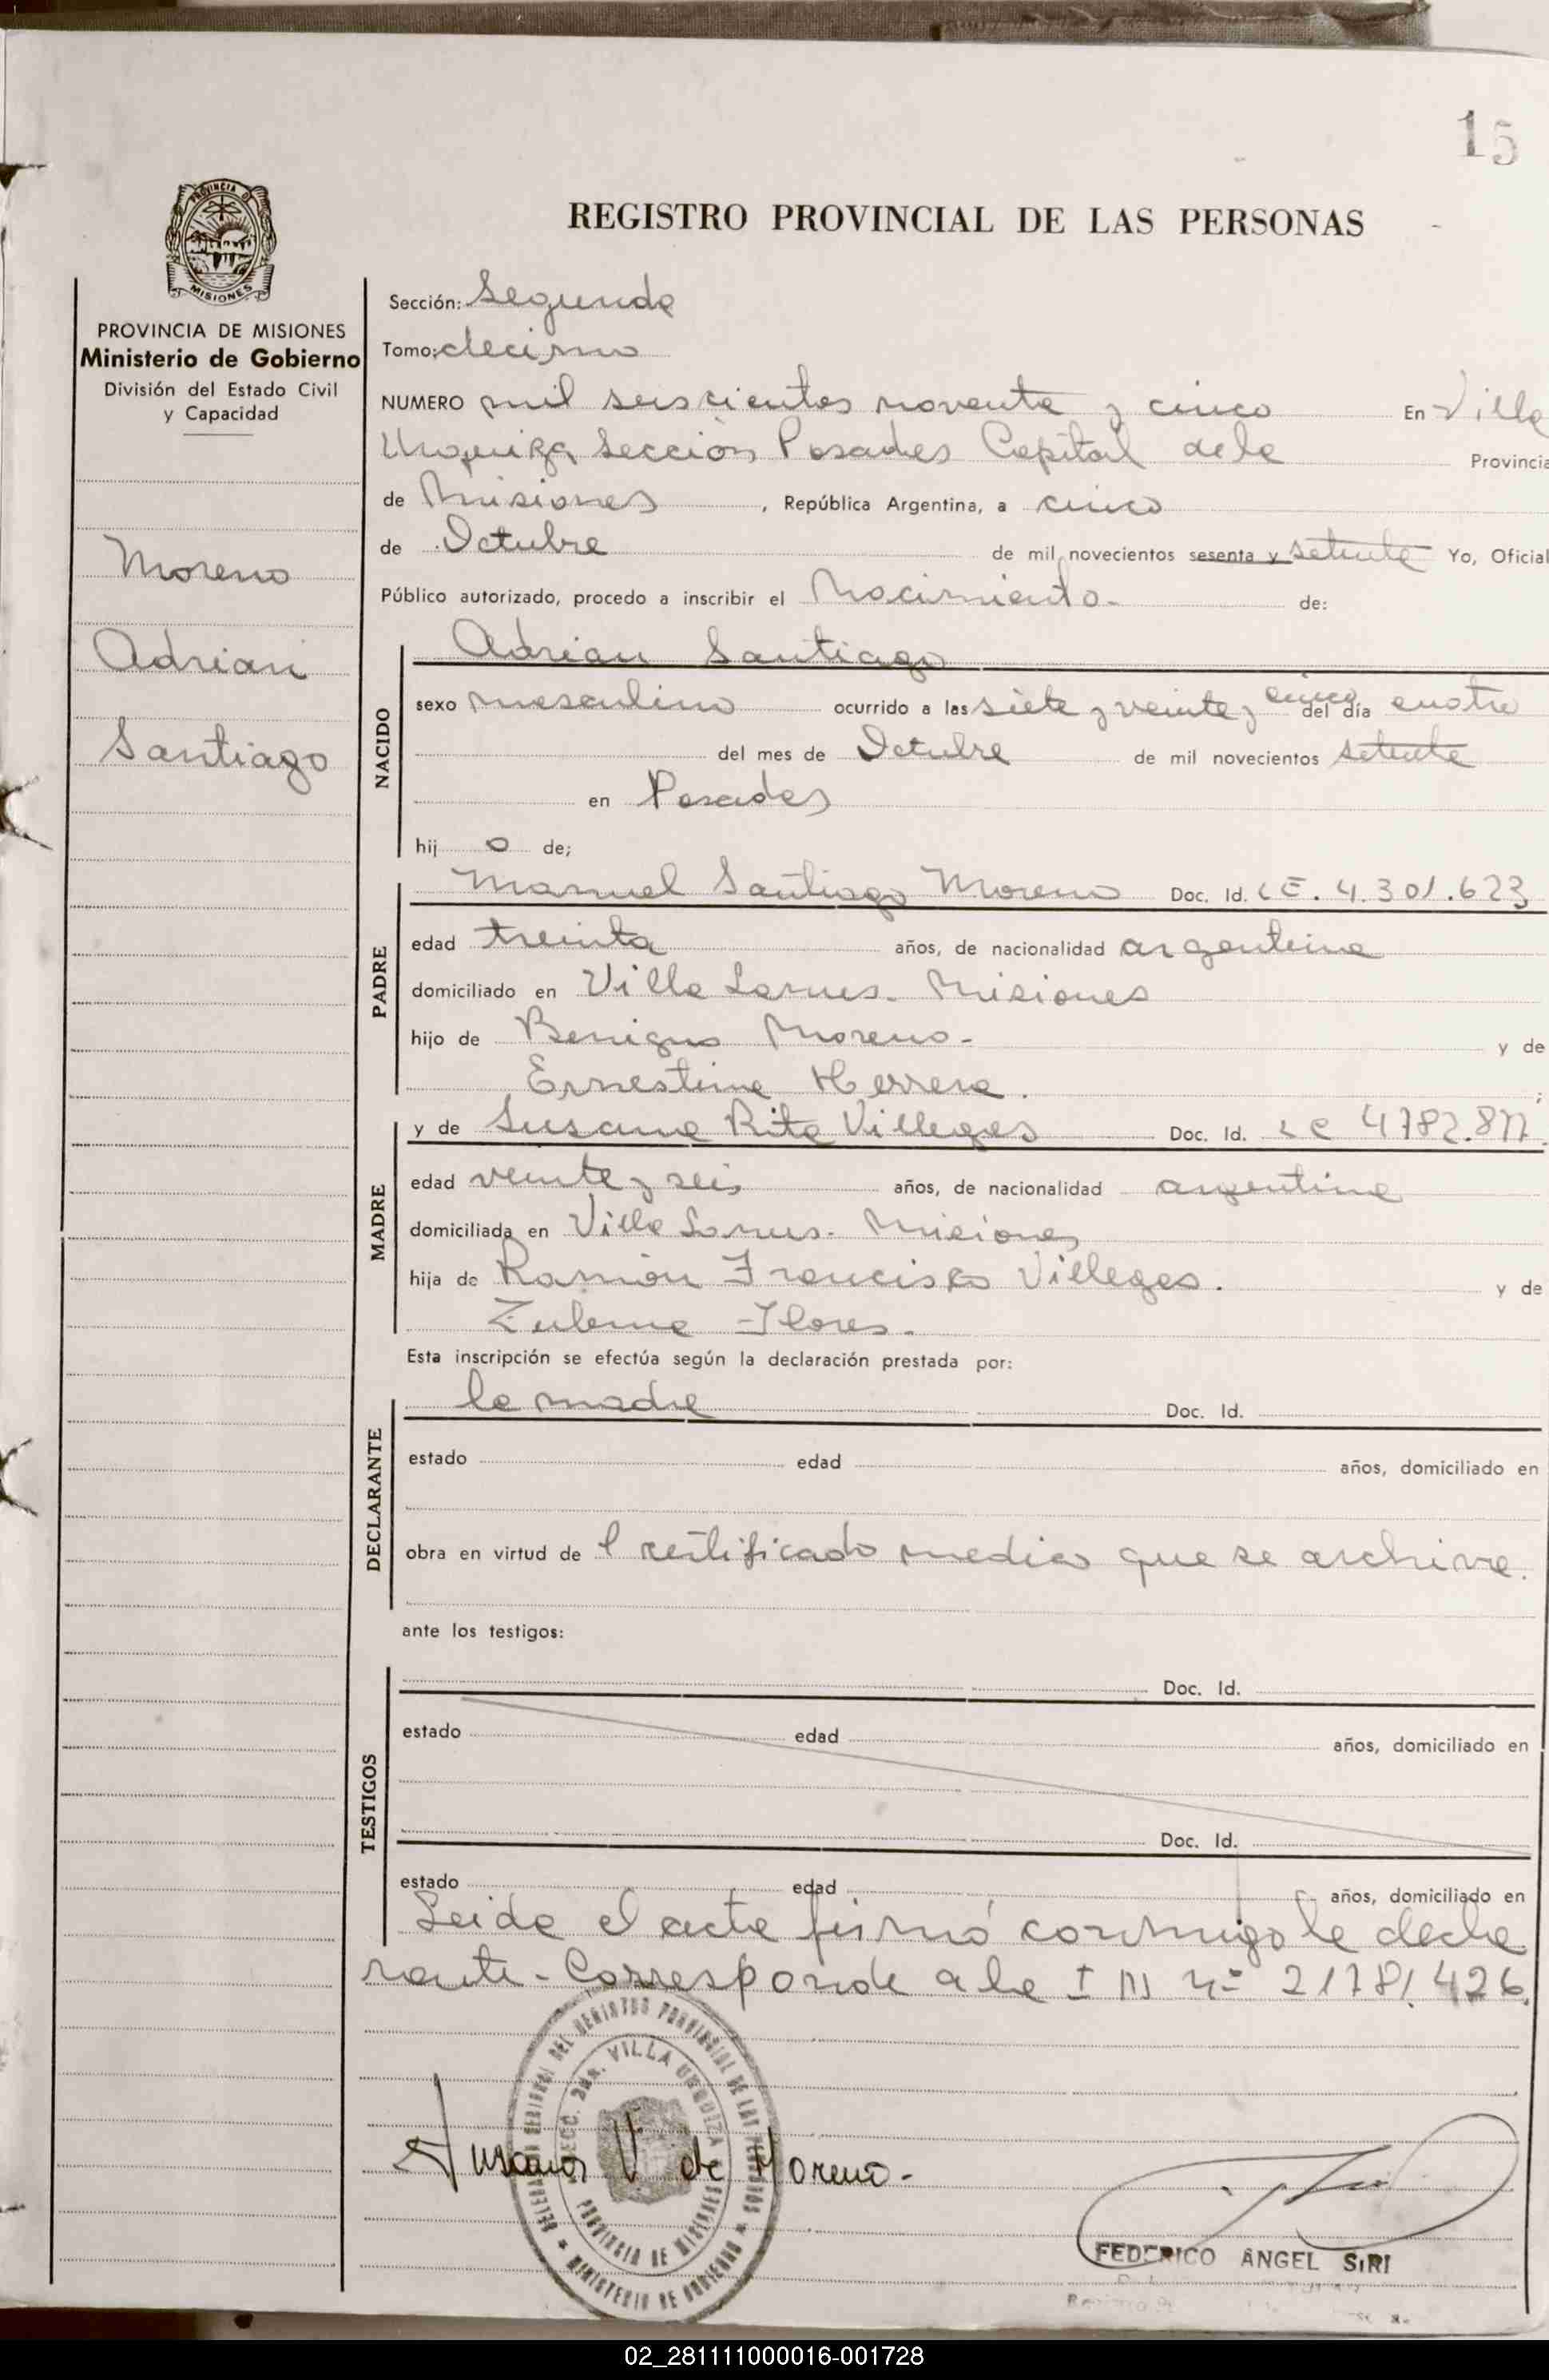 15
PROVINCIA DE
MISIONES
REGISTRO PROVINCIAL DE LAS PERSONAS
PROVINCIA DE MISIONES
Ministerio de Gobierno
División del Estado Civil
y Capacidad
Moreno
Adrian
Santiago
Sección: Segunda
Tomo: decimo
NUMERO mil seiscientos noventa y cinco En Villa
Urquiza Sección Posadas Capital de la Provincia
de Misiones, República Argentina, a cinco
de Octubre de mil novecientos sesenta y setenta Yo, Oficial
Público autorizado, procedo a inscribir el Nacimiento- de:
NACIDO
Adrian Santiago
sexo masculino ocurrido a las siete y veinte y cinco del día cuatro
del mes de Octubre de mil novecientos setenta
en Posadas
hij o de;
PADRE
Manuel Santiago Moreno Doc. Id. LE. 4.301.623
edad treinta años, de nacionalidad argentina
domiciliado en Villa Lanus- Misiones
hijo de Benigno Moreno- y de
Ernestina Herrera.
MADRE
y de Susana Rita Villegas Doc. Id. LC 4782.877
edad veinte y seis años, de nacionalidad argentina
domiciliada en Villa Lanus- Misiones
hija de Ramón Francisco Villegas. y de
Zulema Flores.
Esta inscripción se efectúa según la declaración prestada por:
DECLARANTE
la madre Doc. Id.
estado edad años, domiciliado en
obra en virtud de l certificado medico que se archiva.
ante los testigos:
TESTIGOS
Doc. Id.
estado edad años, domiciliado en
Doc. Id.
estado edad años, domiciliado en
Leida el acta firmó conmigo la decla
rante- Corresponde a la I M nº 21781.426
SECC. 2da. VILLA URQUIZA
PROVINCIA DE MISIONES
MINISTERIO DE GOBIERNO
Susana V de Moreno-
FEDERICO ANGEL SIRI
02_281111000016-001728